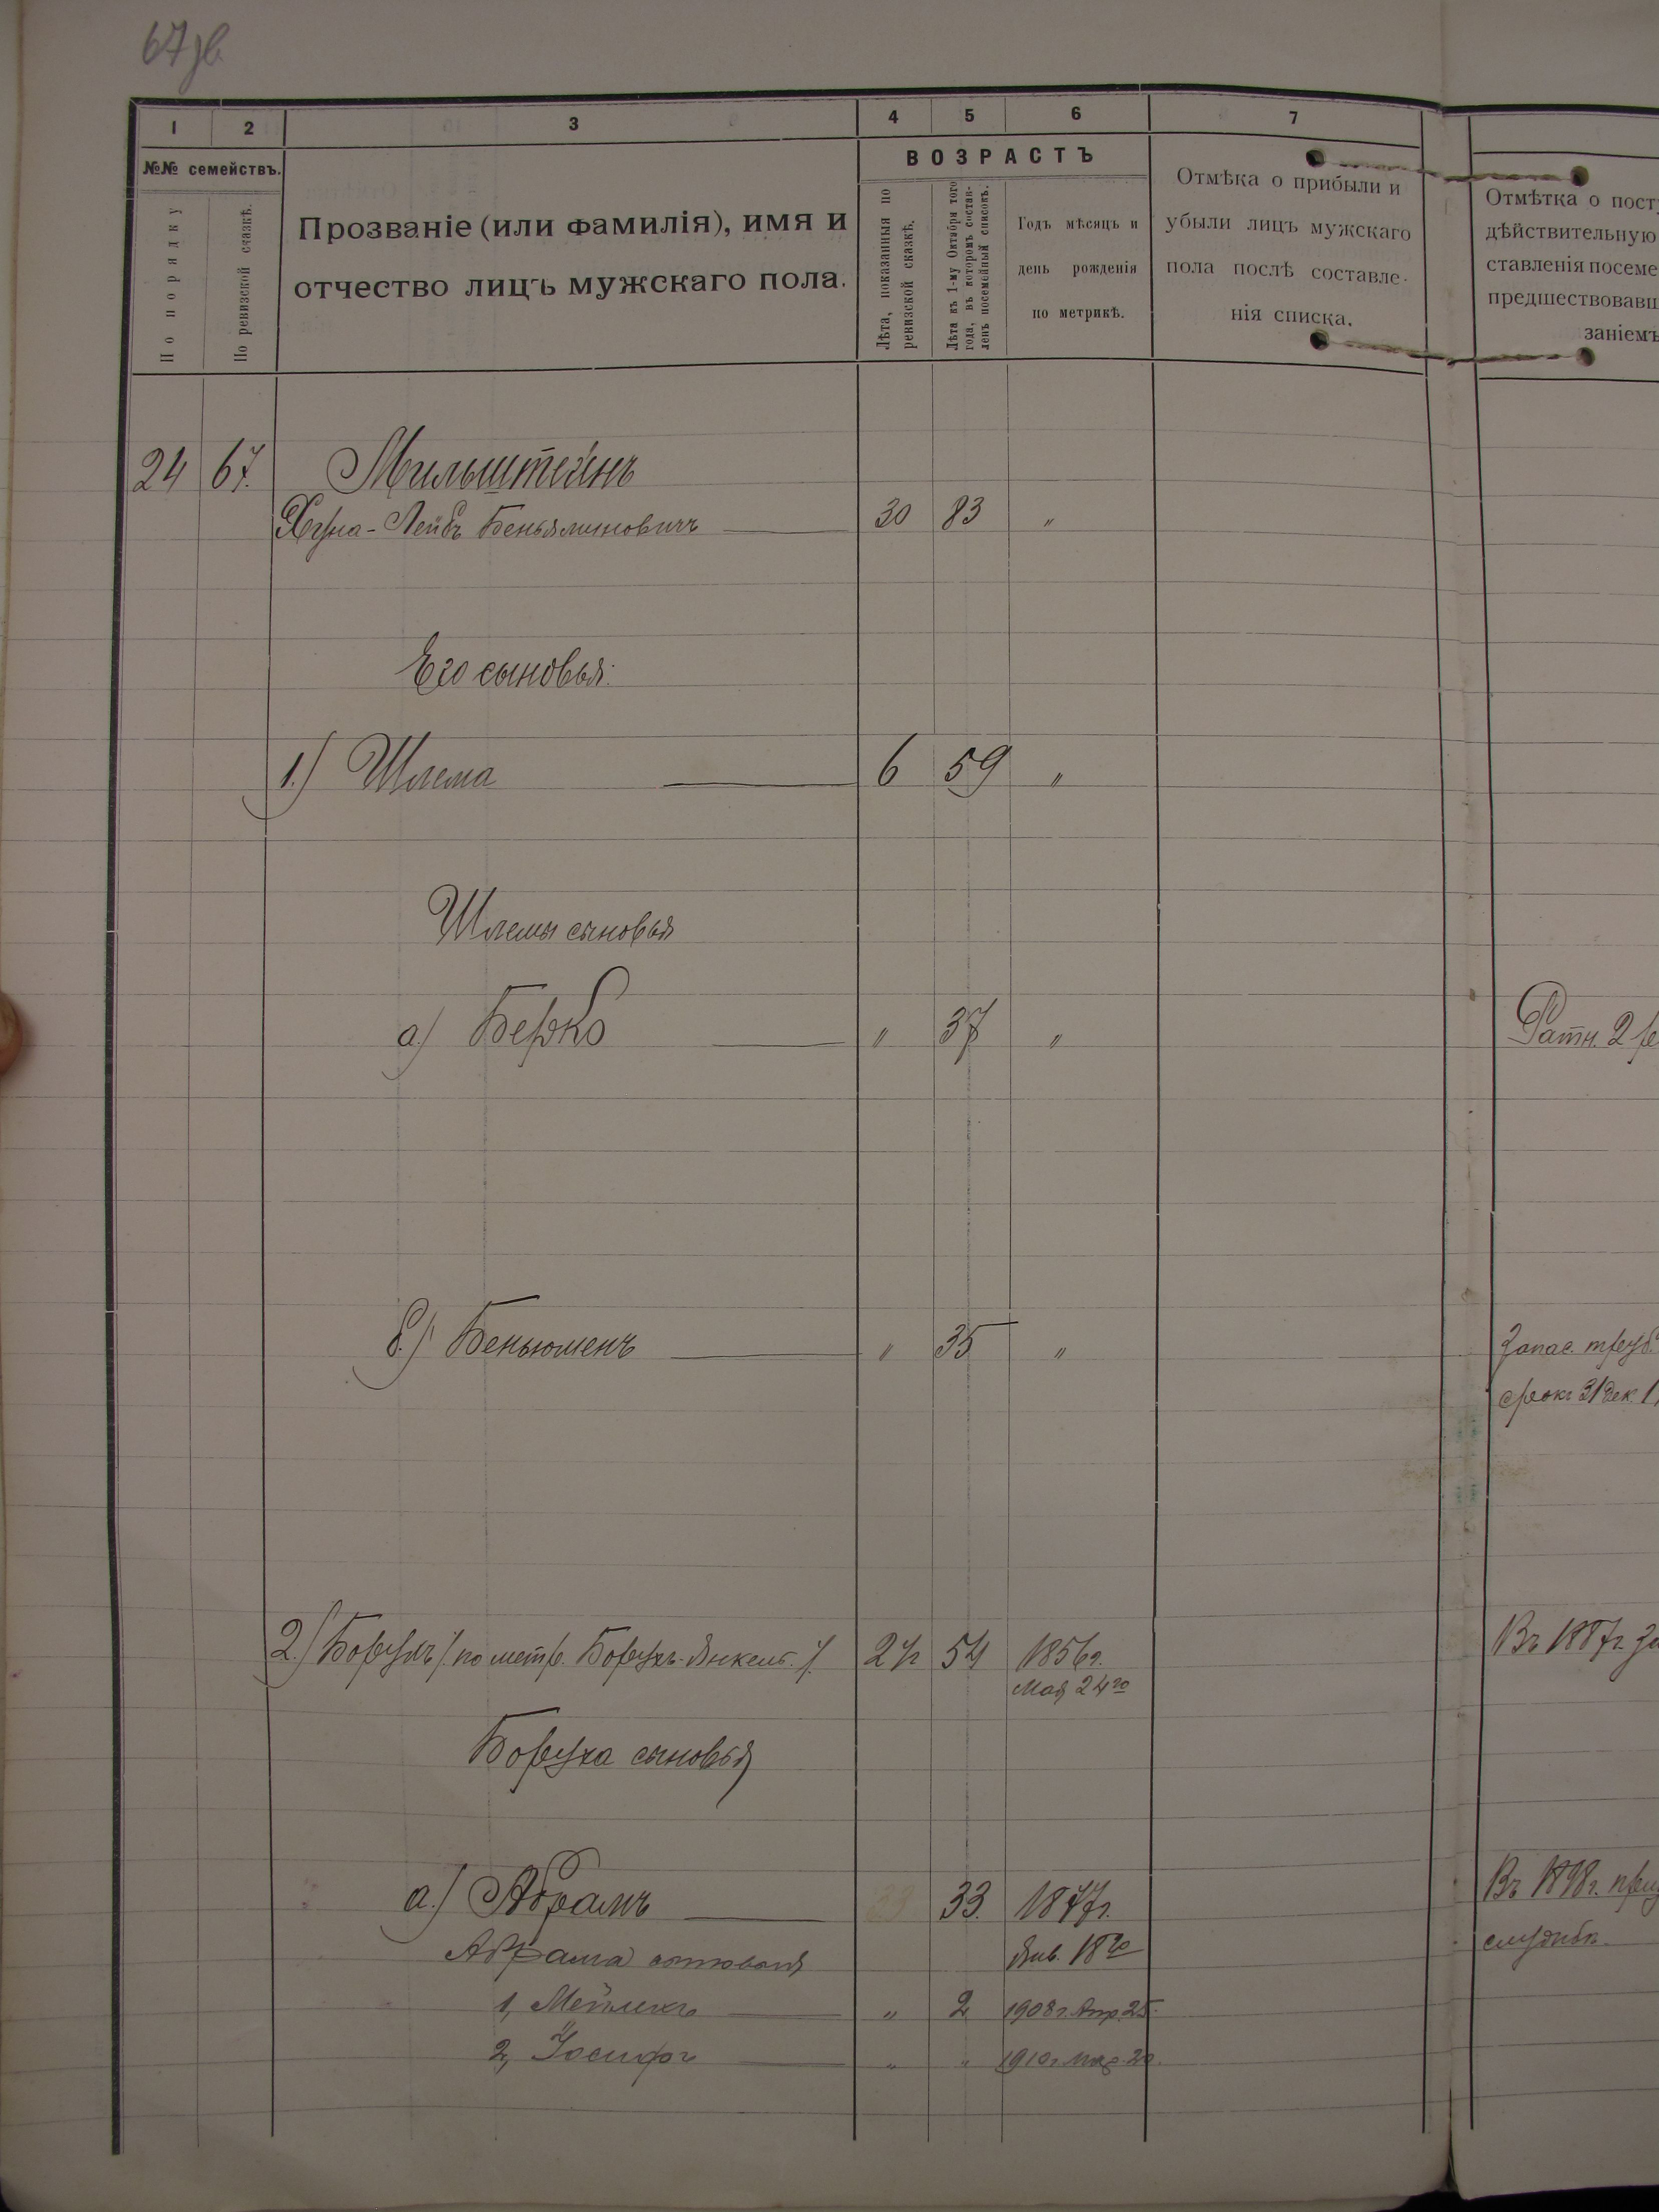 67об.
1 2 3 4 5 6 7
№№ семействъ.
По порядку
По ревизской сказкѣ.
Прозваніе (или фамилія), имя и
отчество лицъ мужскаго пола.
ВОЗРАСТЪ
Лѣта, показанныя по
ревизской сказкѣ.
Лѣта къ 1-му Октября того
года, въ которомъ состав-
ленъ посемейный списокъ.
Годъ мѣсяцъ и
день рожденія
по метрикѣ.
Отмѣка о прибыли и
убыли лицъ мужскаго
пола послѣ составле-
нія списка.
Отмѣтка о пост
дѣйствительную
ставленія посеме
предшествовавш
заніемъ
24 67. Мильштейнъ
Хуна-Лейбъ Беньяминовичъ 30 83 "
Его сыновья:
1.) Шлема 6 59 "
Шлемы сыновья
а.) Берко " 37 " Ратн. 2 р
б.) Беньюменъ " 35 " Запас.
срокъ 31 дек. 1
2.) Борухъ (по метр. Борухъ-Янкель.) 2½ 54 1856г. Въ 1887г. за
Мая 24го
Боруха сыновья
а.) Абрамъ 33 33. 1877г. Въ 1898г.
Абрама сыновья Янв. 18го службѣ.
1, Мейлехъ " 2 1908г. Апр. 25.
2, Іосифъ " " 1910г. 20.